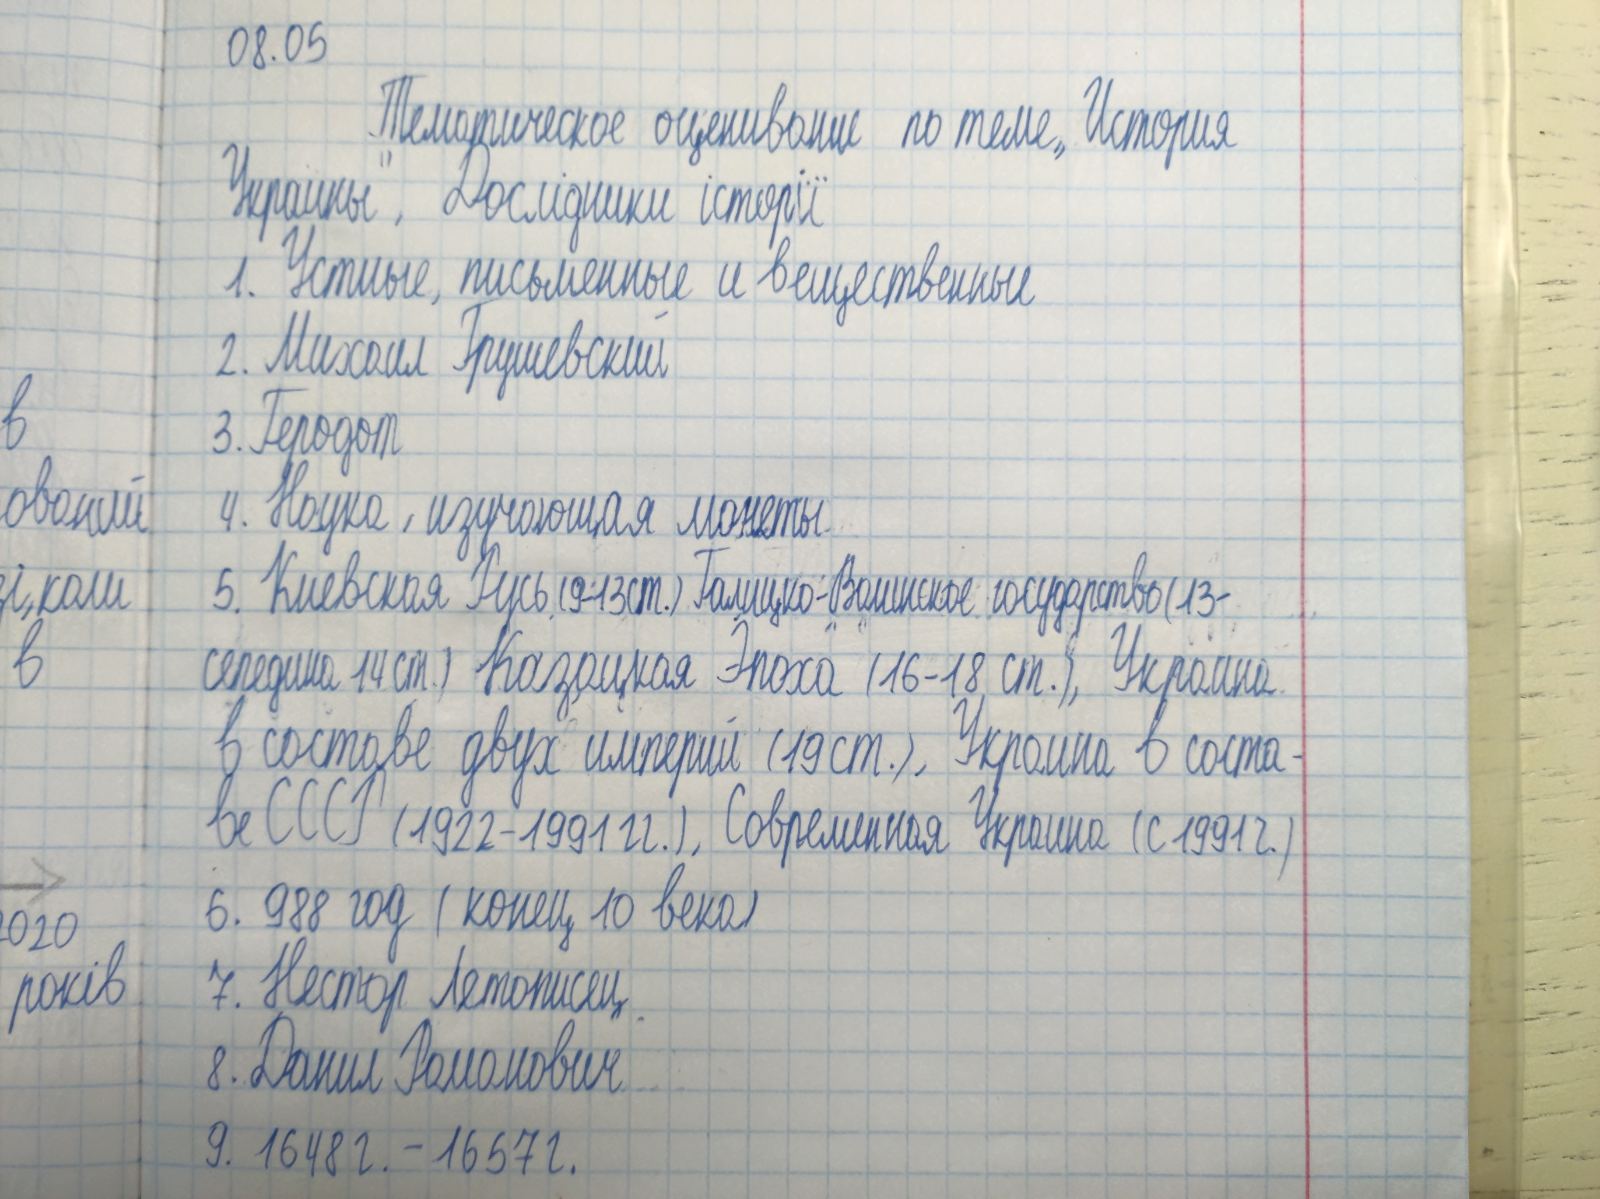 08.05
Тематическое оценивание по теме „История
Украины", Дослідники історії
1. Устные, письменные и вещественные
2. Михаил Грушевский
в
3. Геродот
4. Наука, изучающая монеты
5. Киевская Русь (9-13ст.) Галицко-Волинское государство (13-
коли
середина 14 ст.) Казацкая Эпоха (16-18 ст.), Украина
в
в составе двух империй (19 ст.), Украина в соста-
ве СССР (1922-1991 гг.), Современная Украина (с 1991 г.)
6. 988 год (конец 10 века)
2020
7. Нестор Летописец
років
8. Данил Романович
9. 1648 г. - 1657 г.